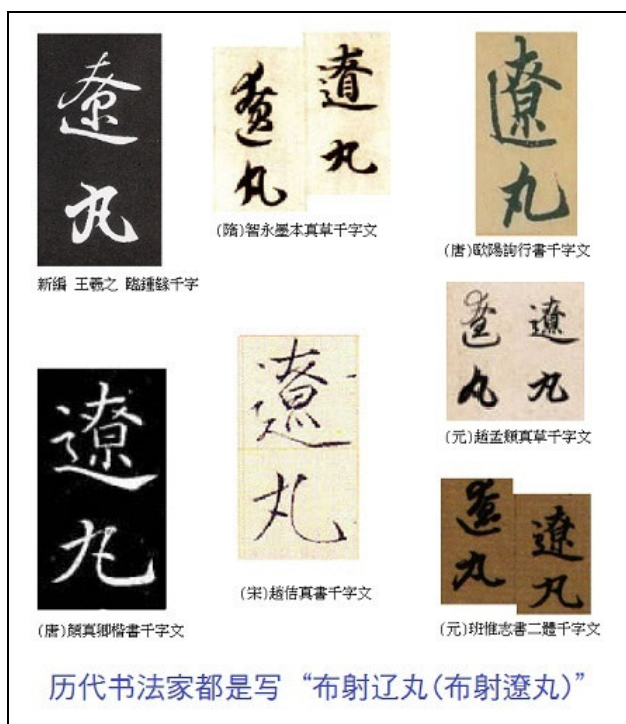 遼
丸
新編 王羲之 臨鍾繇千字
遼
丸
遼
丸
(隋)智永墨本真草千字文
遼
丸
(唐)歐陽詢行書千字文
遼 遼
丸 丸
(元)趙孟頫真草千字文
遼
丸
(唐)顏真卿楷書千字文
遼
丸
(宋)趙佶真書千字文
遼
丸
遼
丸
(元)班惟志書二體千字文
历代书法家都是写 “布射辽丸(布射遼丸)”